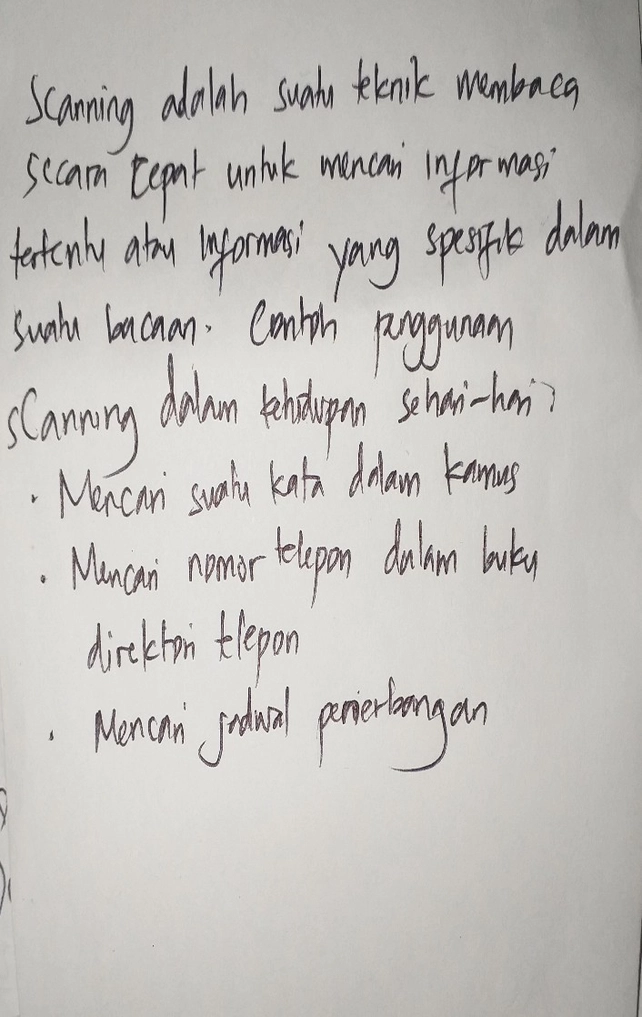 Scanning adalah suatu teknik membaca
secara cepat untuk mencari informasi
tertentu atau informasi yang spesifik dalam
suatu bacaan. Contoh penggunaan
scanning dalam kehidupan sehari-hari?
• Mencari suatu kata dalam kamus
• Mencari nomor telepon dalam buku
direktori telepon
• Mencari jadwal penerbangan